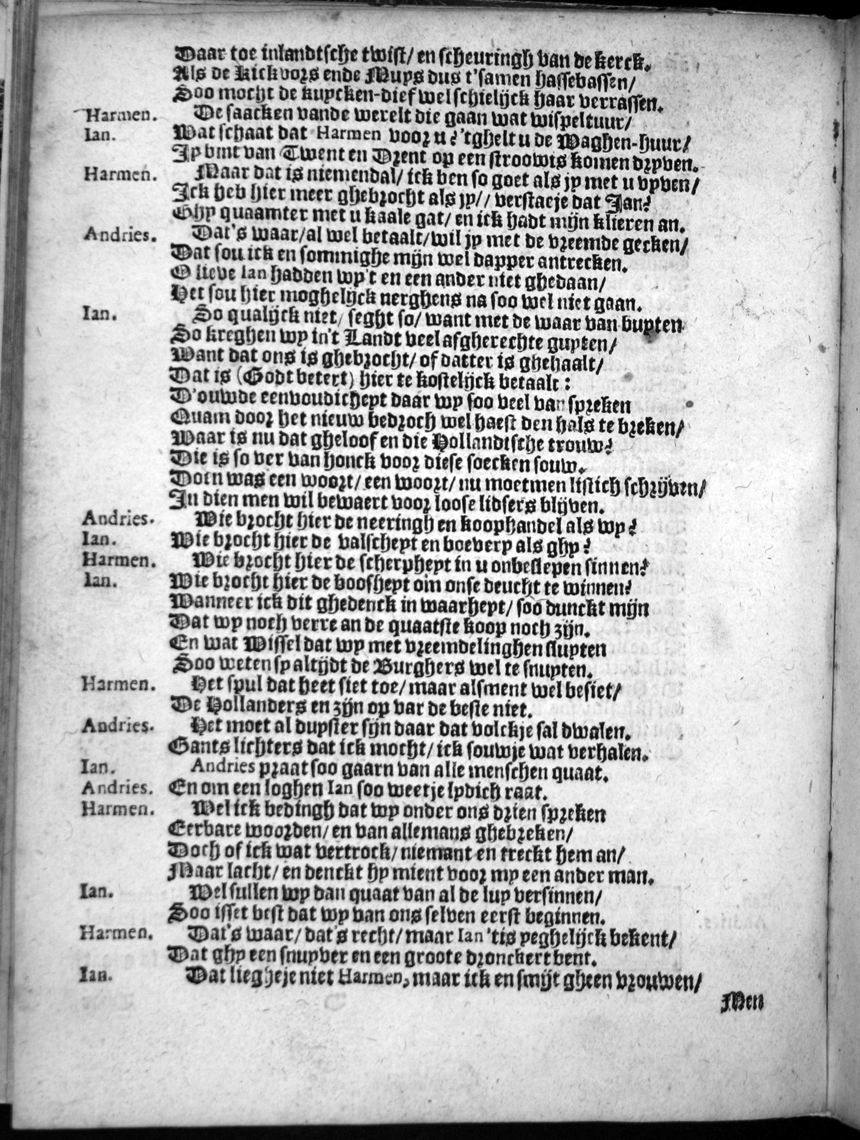 Daar toe inlandtsche twist/ en scheuringh van de kerck.
Als de Kickvors ende Muys dus t'samen hassebassen/
Soo mocht de kuycken-dief wel schielijck haar verrassen.
Harmen. De saacken vande werelt die gaan wat wispeltuur/
Ian. Wat schaat dat Harmen voor u? 'tghelt u de Waghen-huur/
Jy bint van Twent en Drent op een stroowis komen dryven.
Harmen. Maar dat is niemendal/ ick ben so goet als jy met u vyven/
Ick heb hier meer ghebrocht als jy// verstaeje dat Jan?
Ghy quaamter met u kaale gat/ en ick hadt mijn klieren an.
Andries. Dat's waar/al wel betaalt/wil jy met de vreemde gecken/
Dat sou ick en sommighe mijn wel dapper antrecken.
O lieve Ian hadden wy't en een ander niet ghedaan/
Het sou hier moghelijck nerghens na soo wel niet gaan.
Ian. So qualijck niet/ seght so/ want met de waar van buyten
So kreghen wy in't Landt veel afgherechte guyten/
Want dat ons is ghebrocht/ of datter is ghehaalt/
Dat is (Godt betert) hier te kostelijck betaalt:
D'ouwde eenvoudicheyt daar wy soo veel van spreken
Quam door het nieuw bedroch wel haest den hals te breken/
Waar is nu dat gheloof en die Hollandtsche trouw?
Die is so ver van honck voor diese soecken souw.
Doin was een woort/ een woort/ nu moetmen listich schrijven/
In dien men wil bewaert voor loose lidsers blijven.
Andries. Wie brocht hier de neeringh en koophandel als wy?
Ian. Wie brocht hier de valscheyt en boevery als ghy?
Harmen. Wie brocht hier de scherpheyt in u onbeslepen sinnen?
Ian. Wie brocht hier de boosheyt om onse deucht te winnen?
Wanneer ick dit ghedenck in waarheyt/ soo dunckt mijn
Dat wy noch verre an de quaatste koop noch zijn.
En wat Wissel dat wy met vreemdelinghen sluyten
Soo weten sy altijdt de Burghers wel te snuyten.
Harmen. Het spul dat heet siet toe/ maar alsment wel besiet/
De Hollanders en zijn op var de beste niet.
Andries. Het moet al duyster sijn daar dat volckje sal dwalen.
Gants lichters dat ick mocht/ ick souwje wat verhalen.
Ian. Andries praat soo gaarn van alle menschen quaat.
Andries. En om een loghen Ian soo weetje lydich raat.
Harmen. Wel ick bedingh dat wy onder ons drien spreken
Eerbare woorden/ en van allemans ghebreken/
Doch of ick wat vertrock/ niemant en treckt hem an/
Maar lacht/ en denckt hy mient voor my een ander man.
Ian. Wel sullen wy dan quaat van al de luy versinnen/
Soo isset best dat wy van ons selven eerst beginnen.
Harmen. Dat's waar/ dat's recht/ maar Ian 'tis yeghelijck bekent/
Dat ghy een snuyver en een groote dronckert bent.
Ian. Dat liegheje niet Harmen, maar ick en smijt gheen vrouwen/
Men